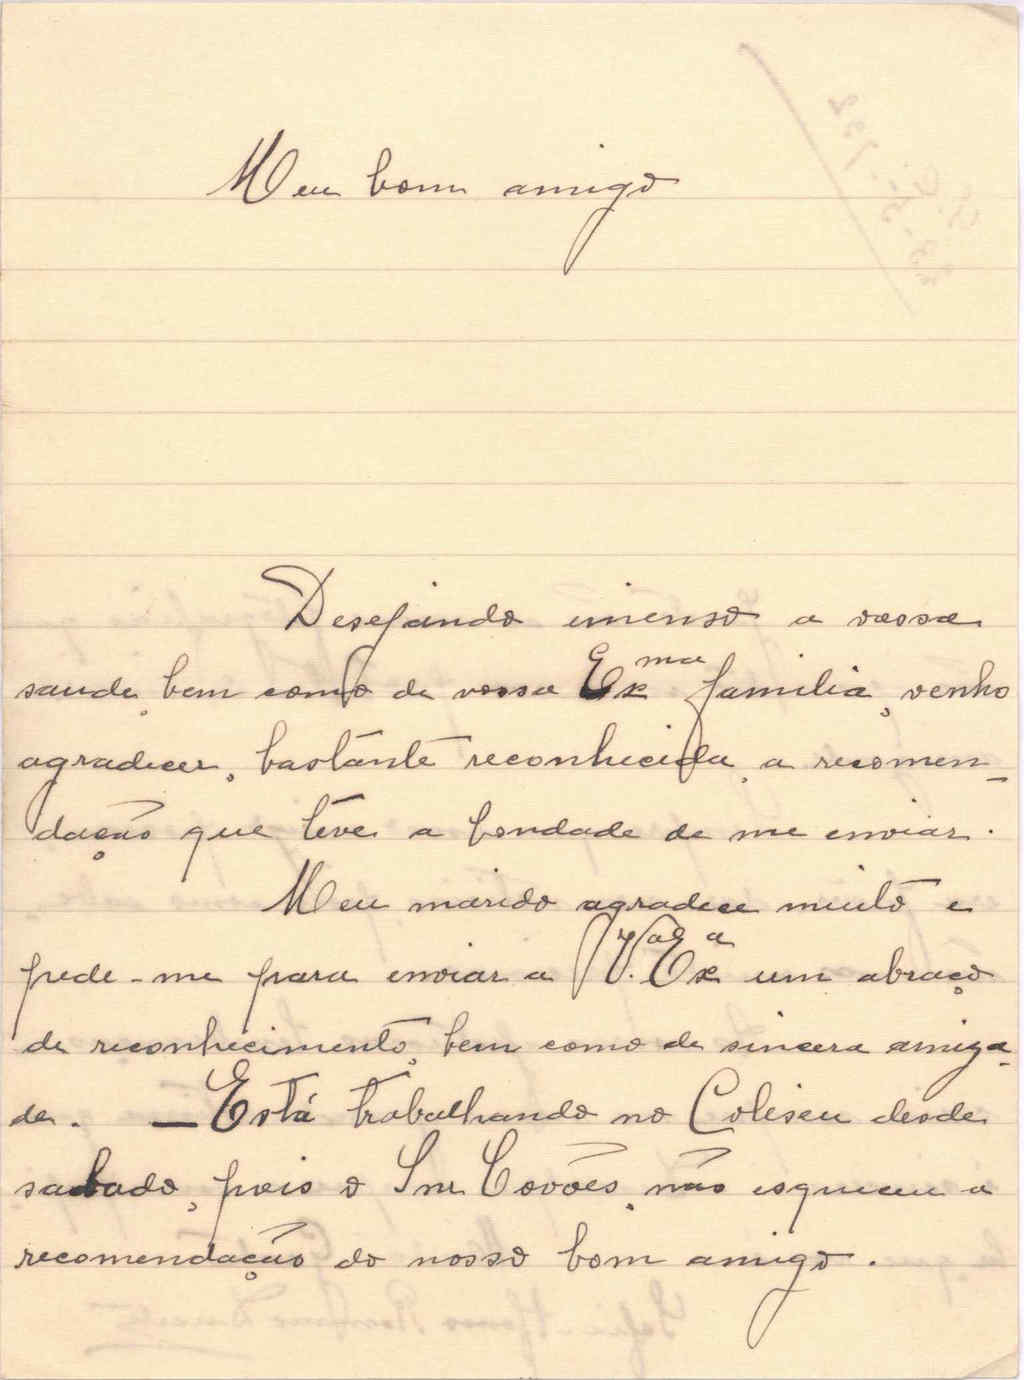 Meu bom amigo
Desejando imenso a vossa
saude, bem como de vossa Exma familia, venho
agradecer, bastante reconhecida, a recomen-
dação que teve a bondade de me enviar.
Meu marido agradece muito e
pede-me para enviar a V. Exa um abraço
de reconhecimento, bem como de sincera amiza-
de. — Está trabalhando no Coliseu desde
sabado, pois o Snr Covões, não esqueceu a
recomendação do nosso bom amigo.